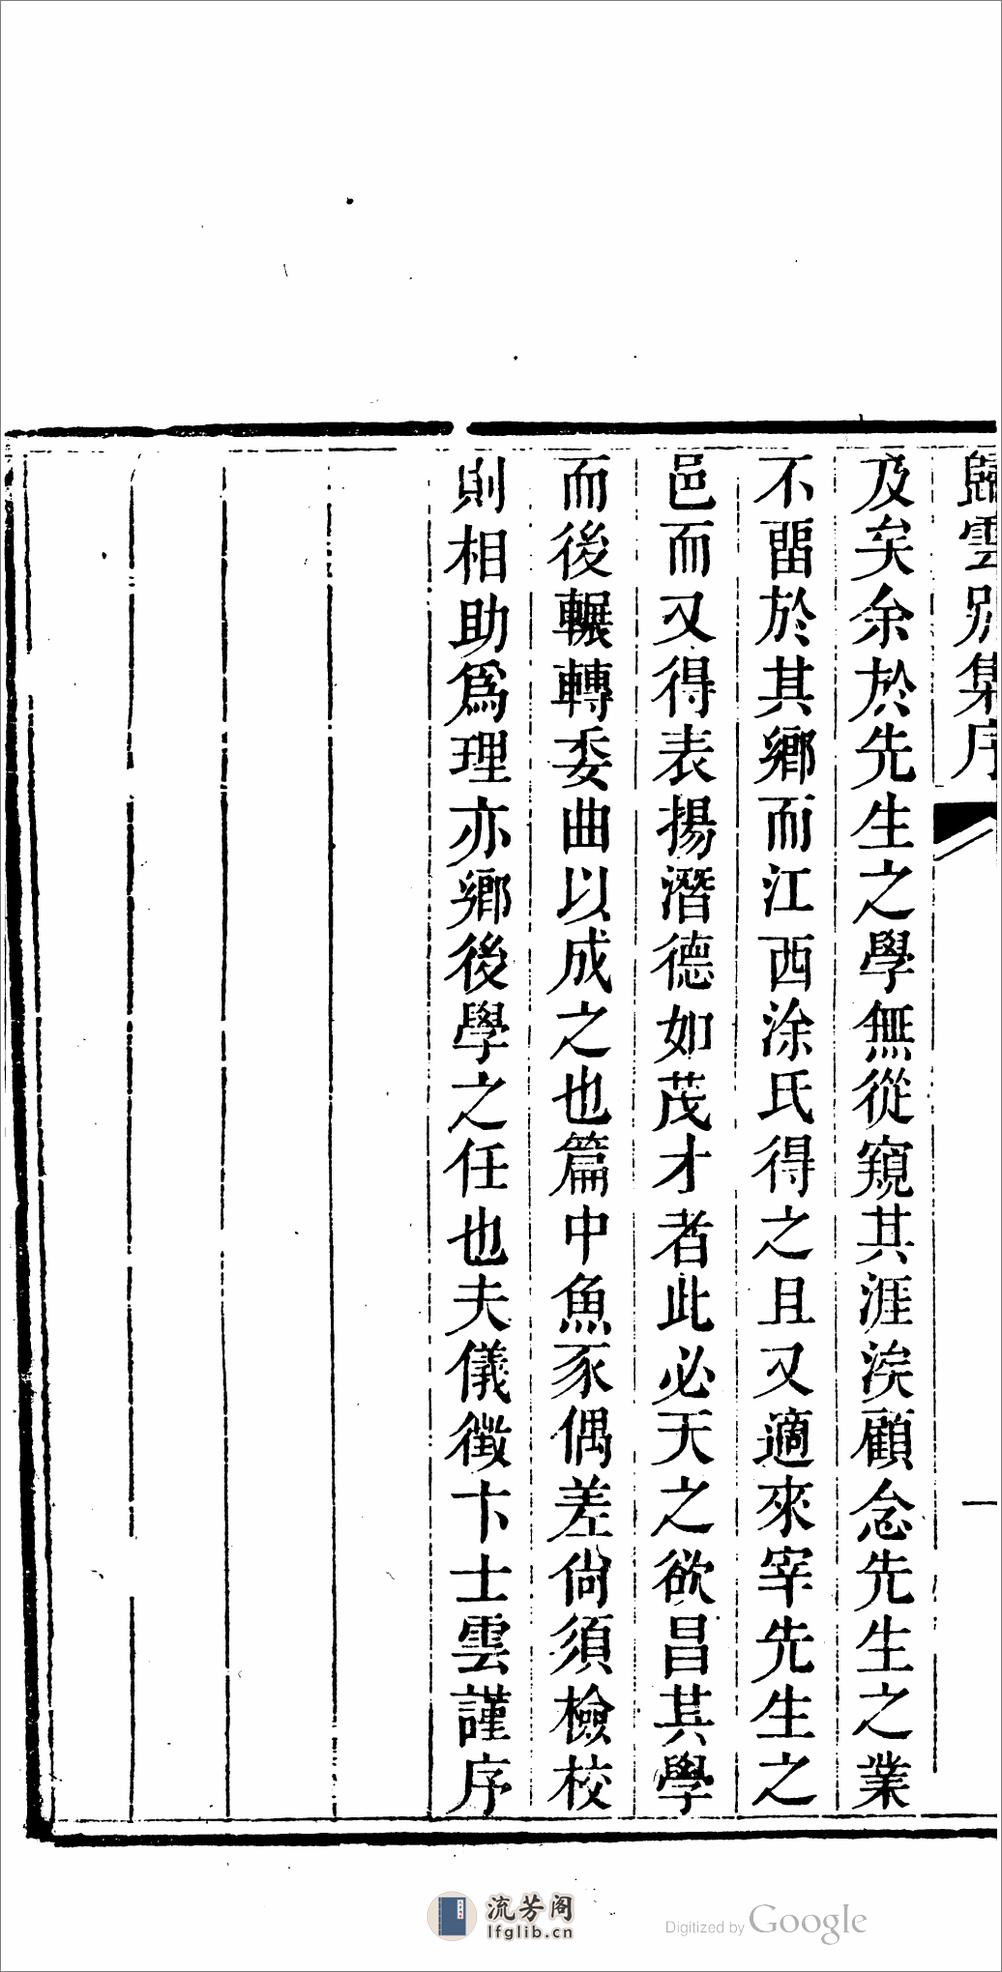 歸雲別集序
一
及矣余於先生之學無從窺其涯涘顧念先生之業
不畱於其鄉而江西涂氏得之且又適來宰先生之
邑而又得表揚潛德如茂才者此必天之欲昌其學
而後輾轉委曲以成之也篇中魚豕偶差尙須檢校
則相助爲理亦鄉後學之任也夫儀徵卞士雲謹序
流芳阁
lfglib.cn
Digitized by Google